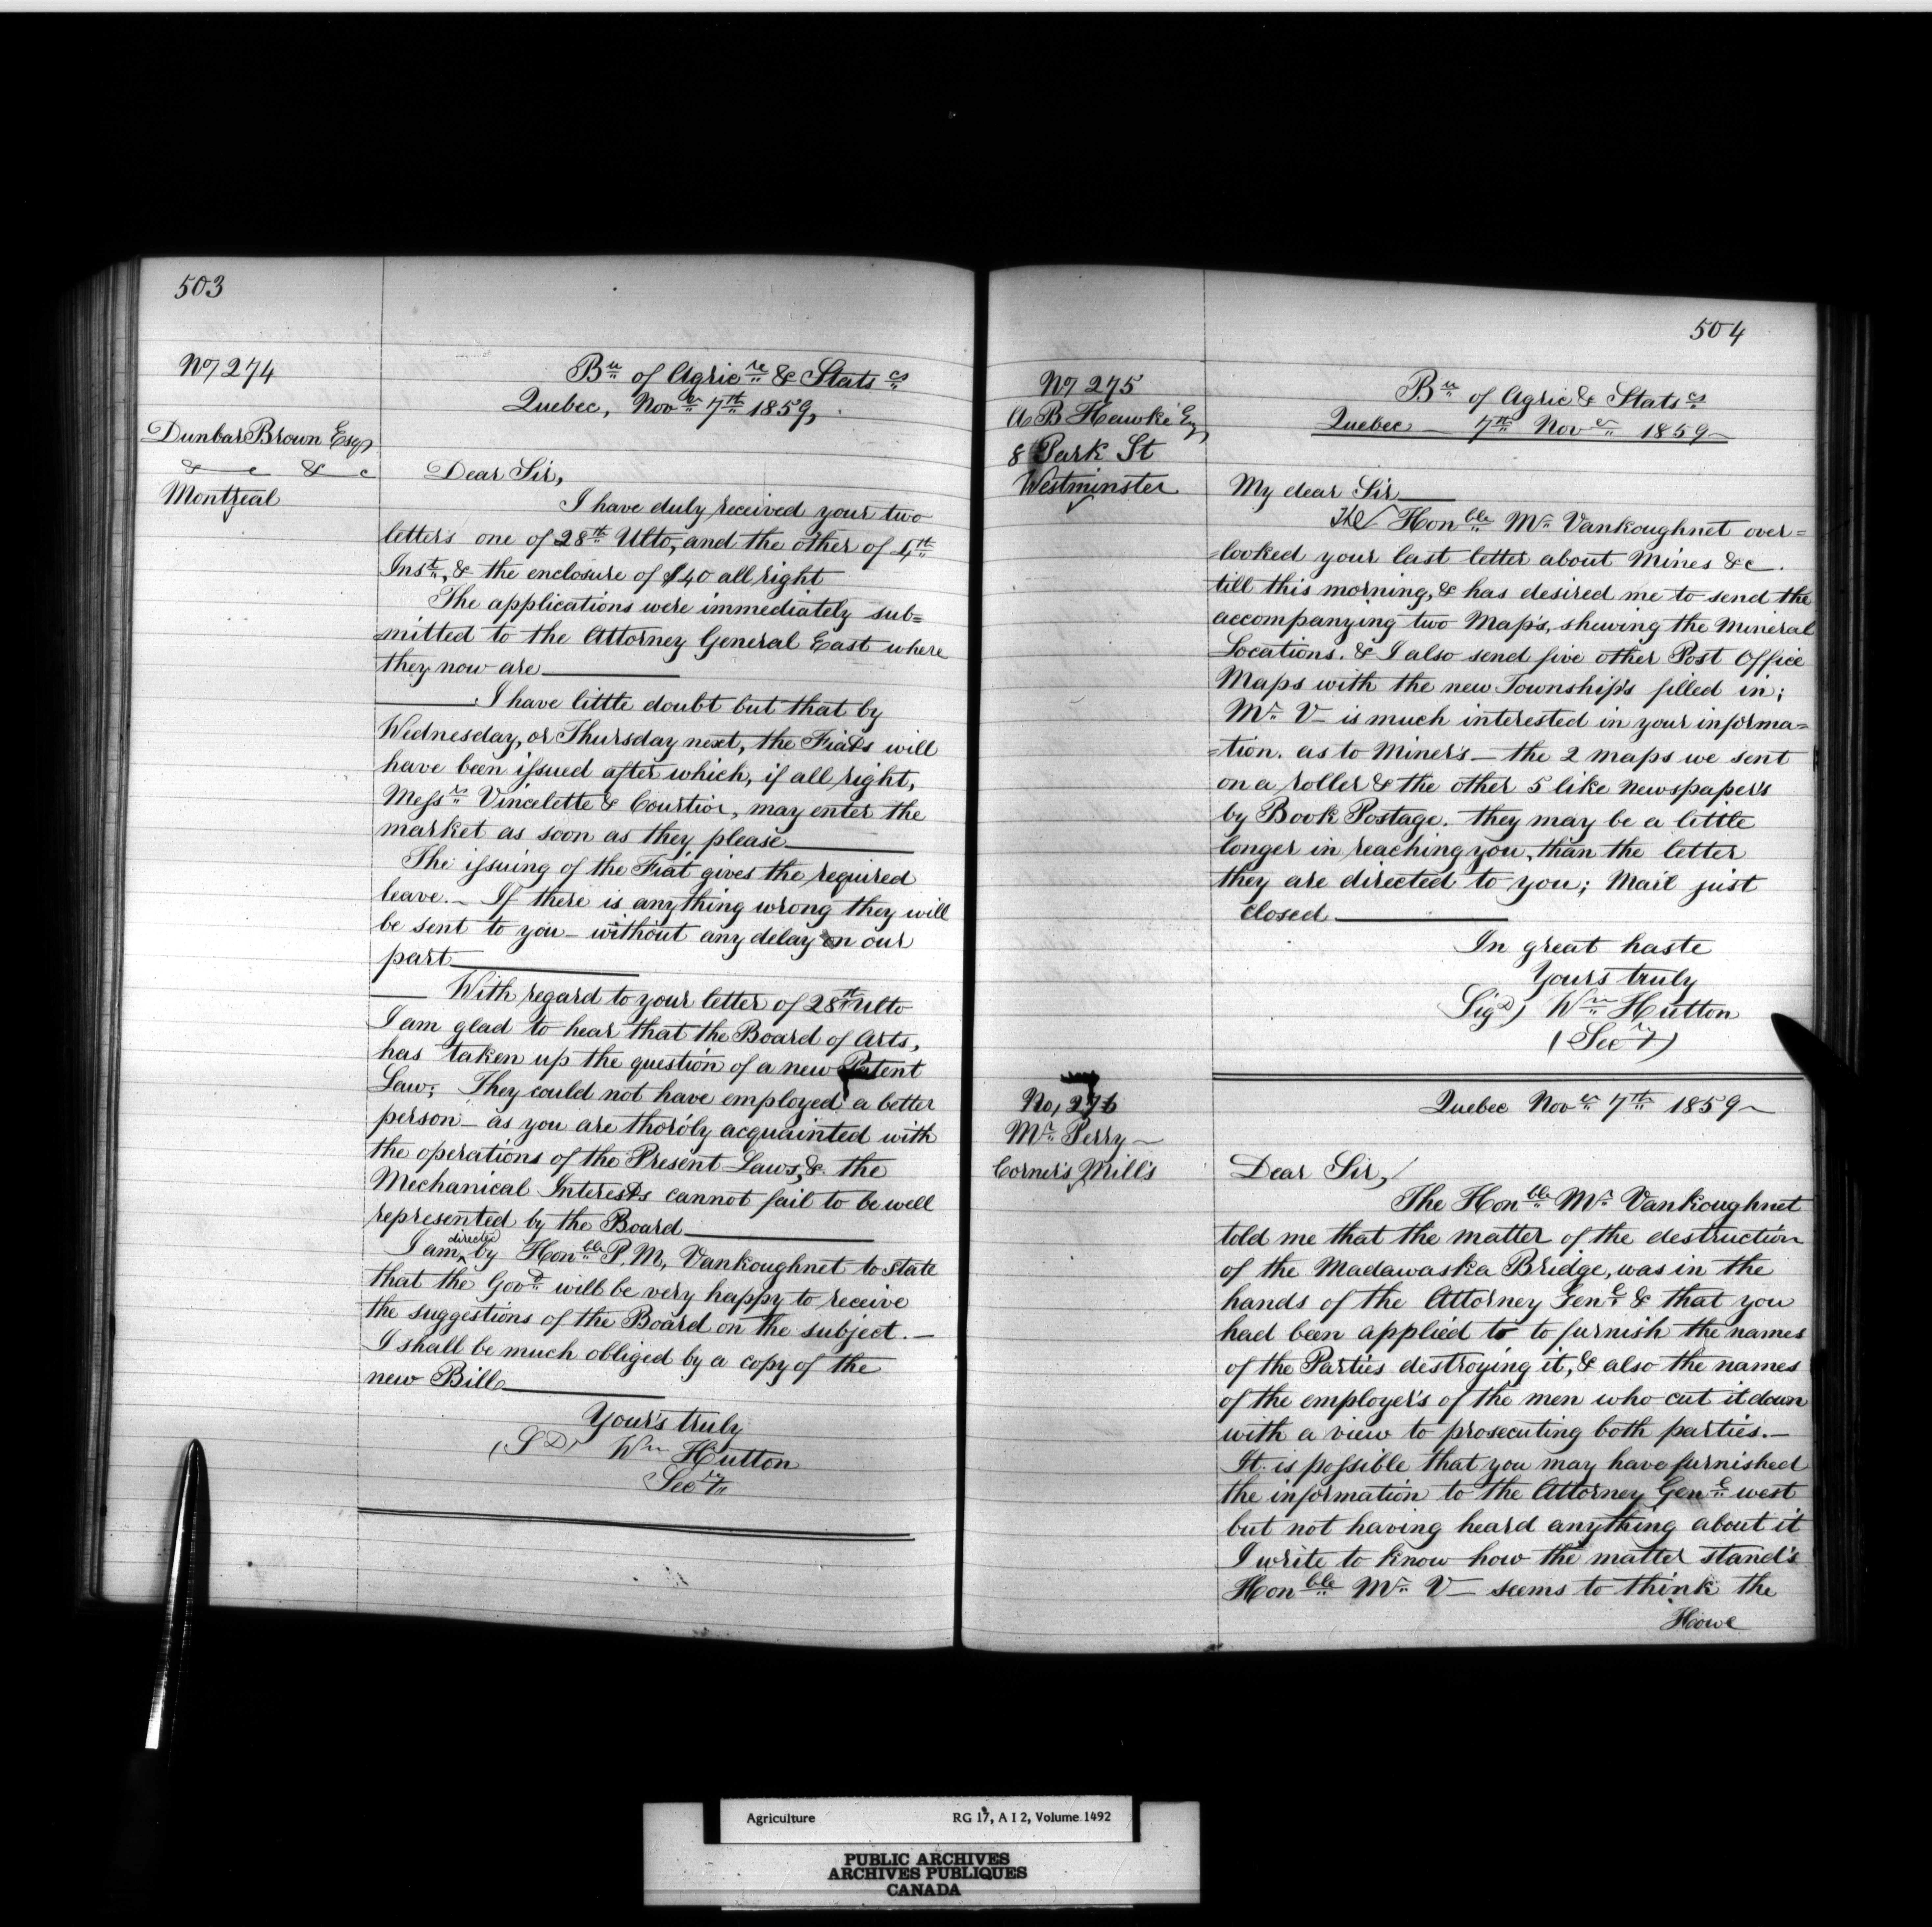 503
No 274
Dunbar Brown Esqr
& c & c
Montreal
Bu of Agricre & Statscs
Quebec, Novr 7th 1859,
Dear Sir,
I have duly received your two
letters one of 28th Ulto, and the other of 4th
Inst, & the enclosure of $40 all right
The applications were immediately sub=
=mitted to the Attorney General East where
they now are
I have little doubt but that by
Wednesday, or Thursday next, the Fiats will
have been issued after which, if all right,
Messrs Vincelette & Courtior, may enter the
market as soon as they please
The issuing of the Fiat gives the required
leave. _ If there is anything wrong they will
be sent to you _ without any delay on our
part
With regard to your letter of 28th Ulto
I am glad to hear that the Board of Arts,
has taken up the question of a new Patent
Law; They could not have employed a better
person _ as you are thoro'ly acquainted with
the operations of the Present Laws, & the
Mechanical Interests cannot fail to be well
represented by the Board
I am directed by Honble P. M, Vankoughnet to state
that the Govt will be very happy to receive
the suggestions of the Board on the subject. _
I shall be much obliged by a copy of the
new Bill
Your's truly
(SD) Wm Hutton
Secry
504
No 275
A B Hawke Esq
8 Park St
Westminster
Bu of Agric & Statscs
Quebec _ 7th Novr 1859 _
My dear Sir
The Honble Mr Vankoughnet over=
=looked your last letter about Mines &c.
till this morning, & has desired me to send the
accompanying two Map's, shewing the Mineral
Locations. & I also send five other Post Office
Maps with the new Township's filled in;
Mr V _ is much interested in your informa=
=tion. as to Miner's _ the 2 maps we sent
on a roller & the other 5 like Newspaper's
by Book Postage. they may be a little
longer in reaching you, than the letter
they are directed to you; Mail just
closed
In great haste
Your's truly
SigD) Wm Hutton
(Secry)
No, 276
Mr Perry _
Corner's Mill's
Quebec Novr 7th 1859 _
Dear Sir,
The Honble Mr Vankoughnet
told me that the matter of the destruction
of the Madawaska Bridge, was in the
hands of the Attorney Genl & that you
had been applied to to furnish the names
of the Parties destroying it, & also the names
of the employer's of the men who cut it down
with a view to prosecuting both parties. _
It is possible that you may have furnished
the information to the Attorney Genl west
but not having heard anything about it
I write to know how the matter stand's
Honble Mr V _ seems to think the
Howe
Agriculture RG 17, A I 2, Volume 1492
PUBLIC ARCHIVES
ARCHIVES PUBLIQUES
CANADA